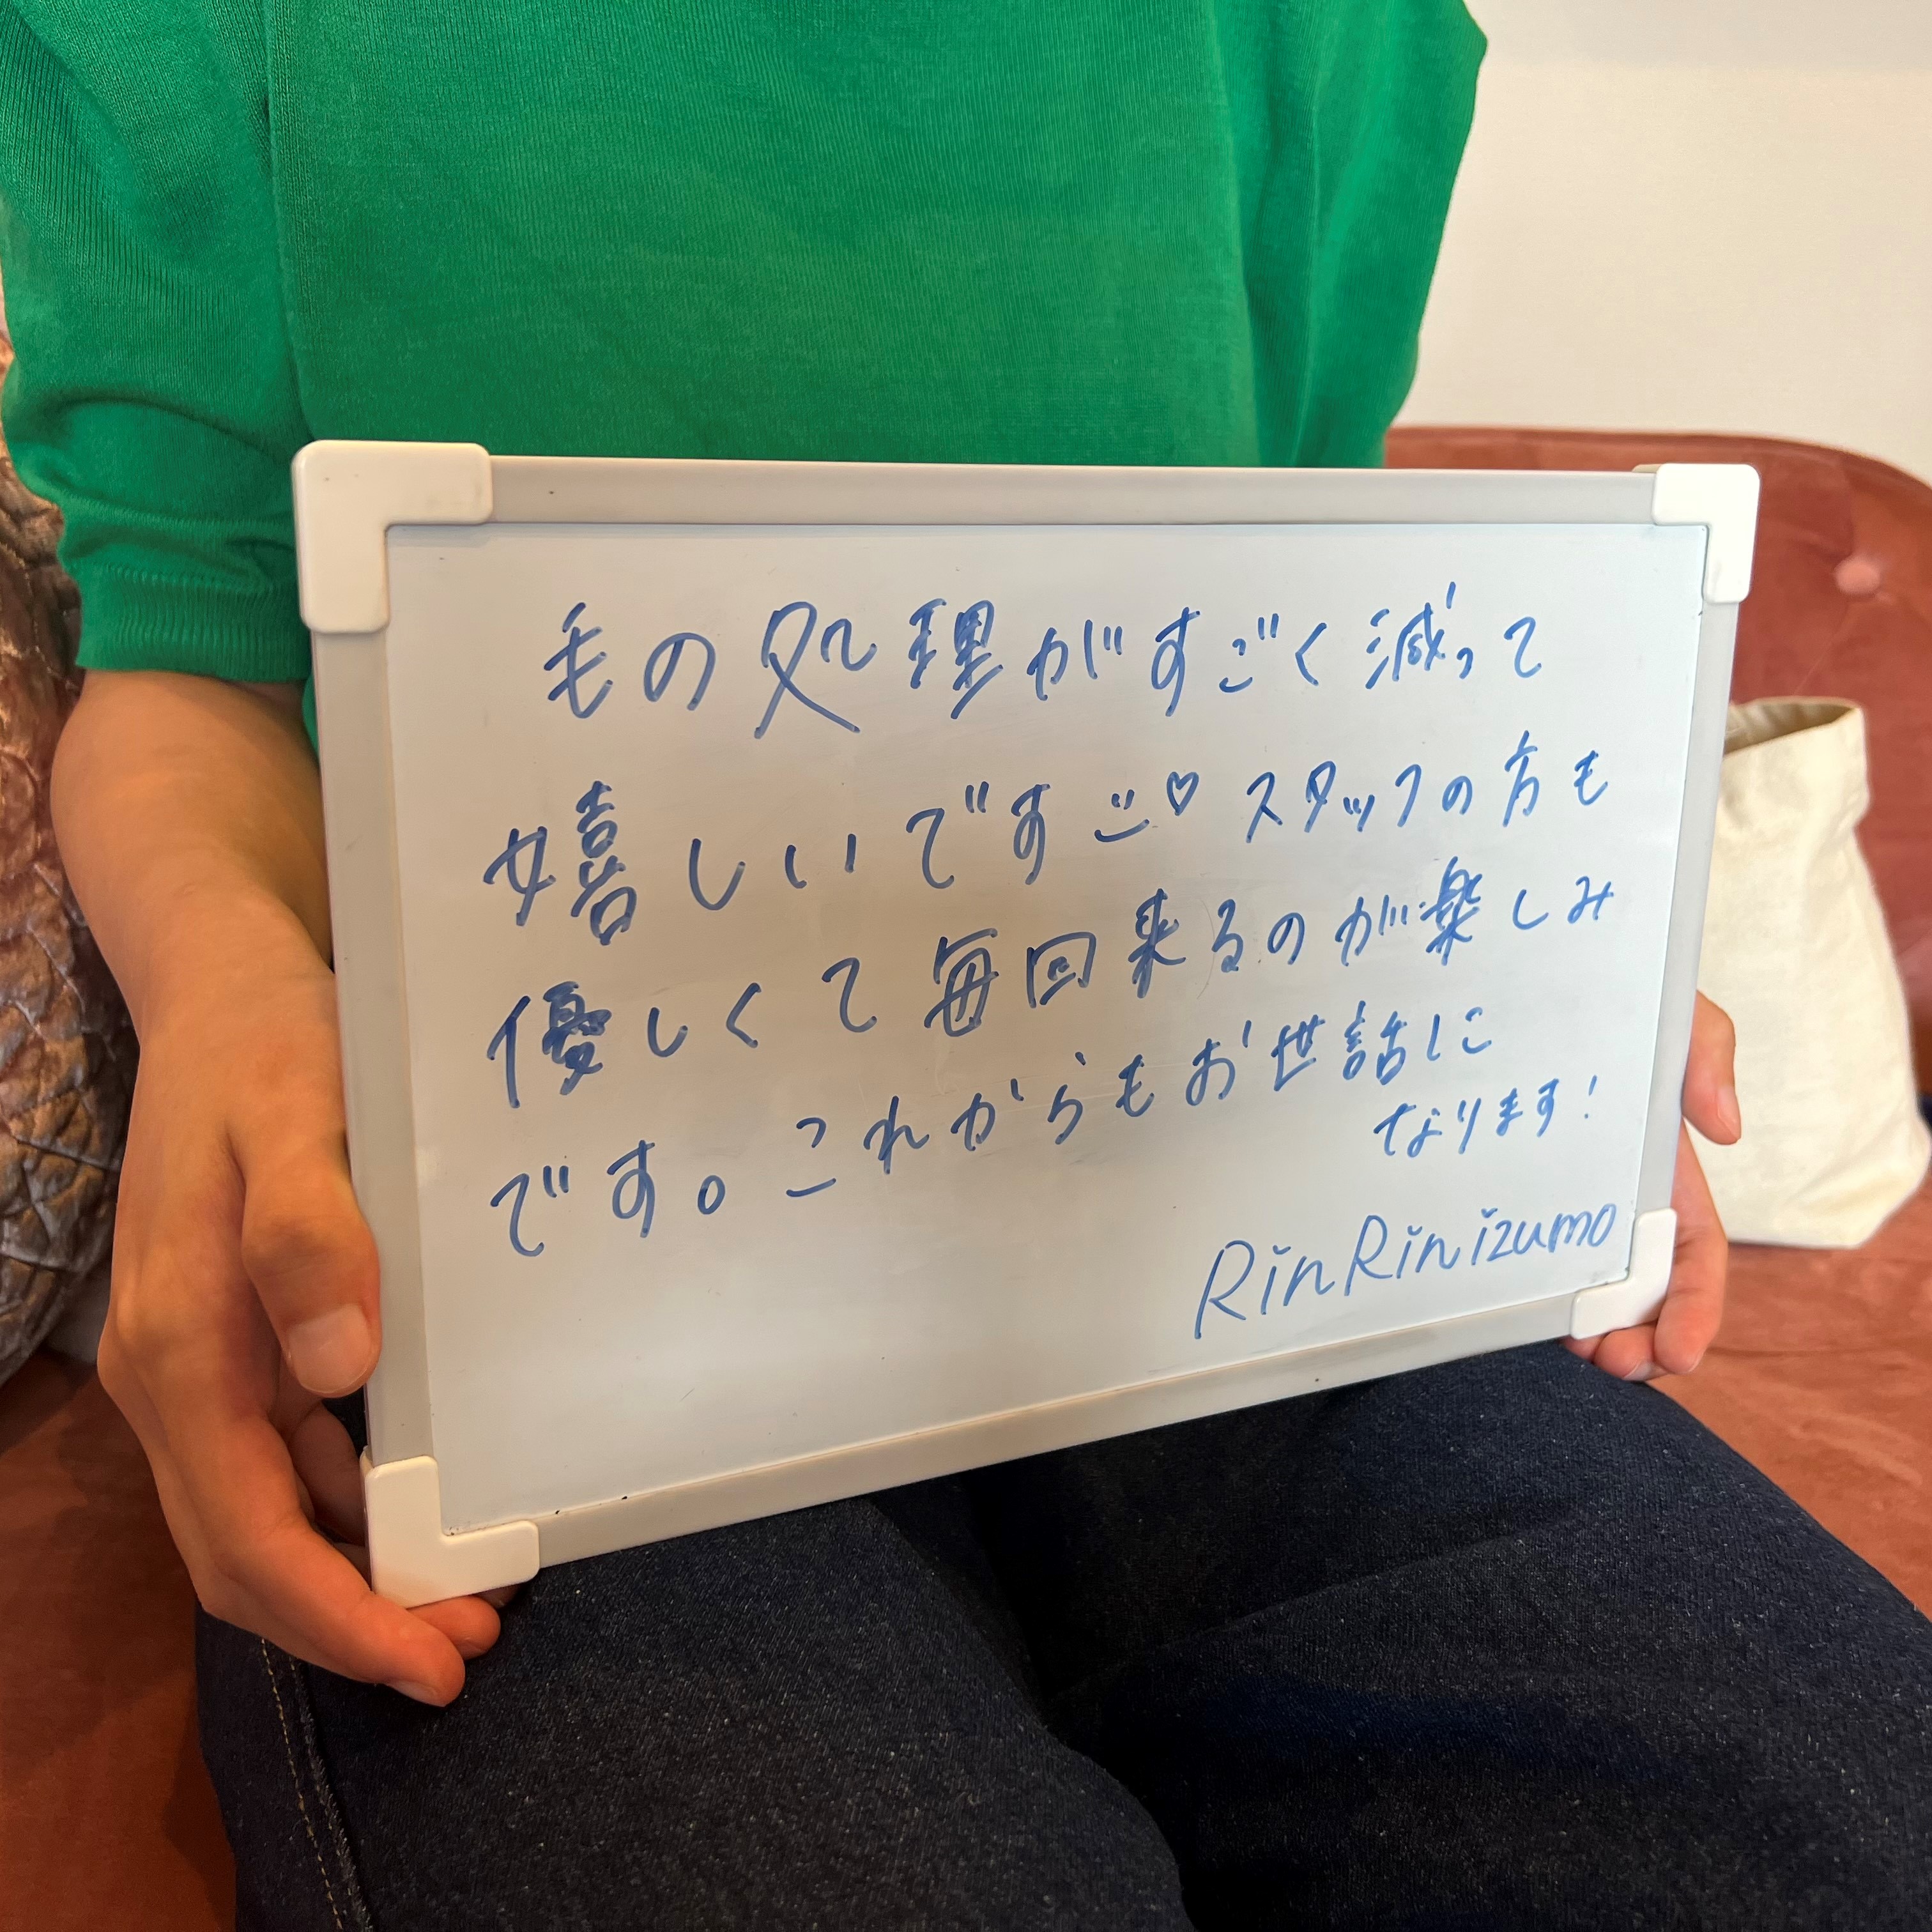 毛の処理がすごく減って
嬉しいです ♡ スタッフの方も
優しくて毎回来るのが楽しみ
です。これからもお世話に
なります!
RinRinizumo